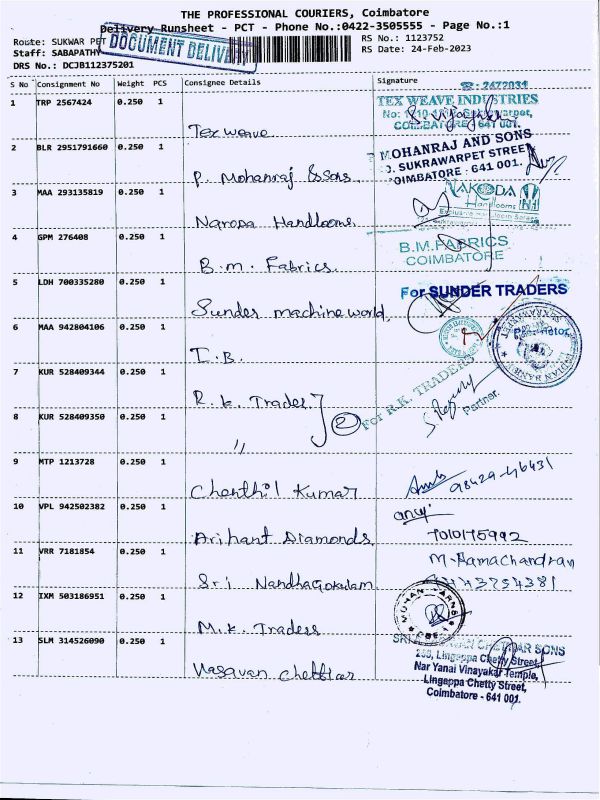 THE PROFESSIONAL COURIERS, Coimbatore
Delivery Runsheet - PCT - Phone No.:0422-3505555 - Page No.:1
Route: SUKWAR PET
Staff: SABAPATHY
DRS No.: DCJB112375201
DOCUMENT DELIVE
RS No.: 1123752
RS Date: 24-Feb-2023
S No Consignment No Weight PCS Consignee Details Signature
1 TRP 2567424 0.250 1 Tex weave
TEX WEAVE INDUSTRIES
COIMBATORE 641 001.
2 BLR 2951791660 0.250 1 P. Mohanraj & Sons
MOHANRAJ AND SONS
SUKRAWARPET STREET
COIMBATORE - 641 001.
3 MAA 293135819 0.250 1 Naroda Handlooms
NAKODA
Handlooms
4 GPM 276408 0.250 1 B.M. Fabrics
B.M.FABRICS
COIMBATORE
5 LDH 700335280 0.250 1 Sunder machine world,
For SUNDER TRADERS
6 MAA 942804106 0.250 1 I.B.
7 KUR 528409344 0.250 1 R.K. Trader
2
For R.K. TRADERS
Partner.
8 KUR 528409350 0.250 1 "
9 MTP 1213728 0.250 1 Chenthil Kumar
98429-46431
10 VPL 942502382 0.250 1 Arihant Diamonds
7010175992
11 VRR 7181854 0.250 1 Sri Nandhagokulam
M. Ramachandran
12 IXM 503186951 0.250 1 M.K. Traders
MOHAN YARNS
CBE-1
13 SLM 314526090 0.250 1 Vasavan Chettiar
CHETTIAR SONS
Lingappa Chetty Street,
Nar Yanai Vinayakar Temple,
Lingappa Chetty Street,
Coimbatore - 641 001.